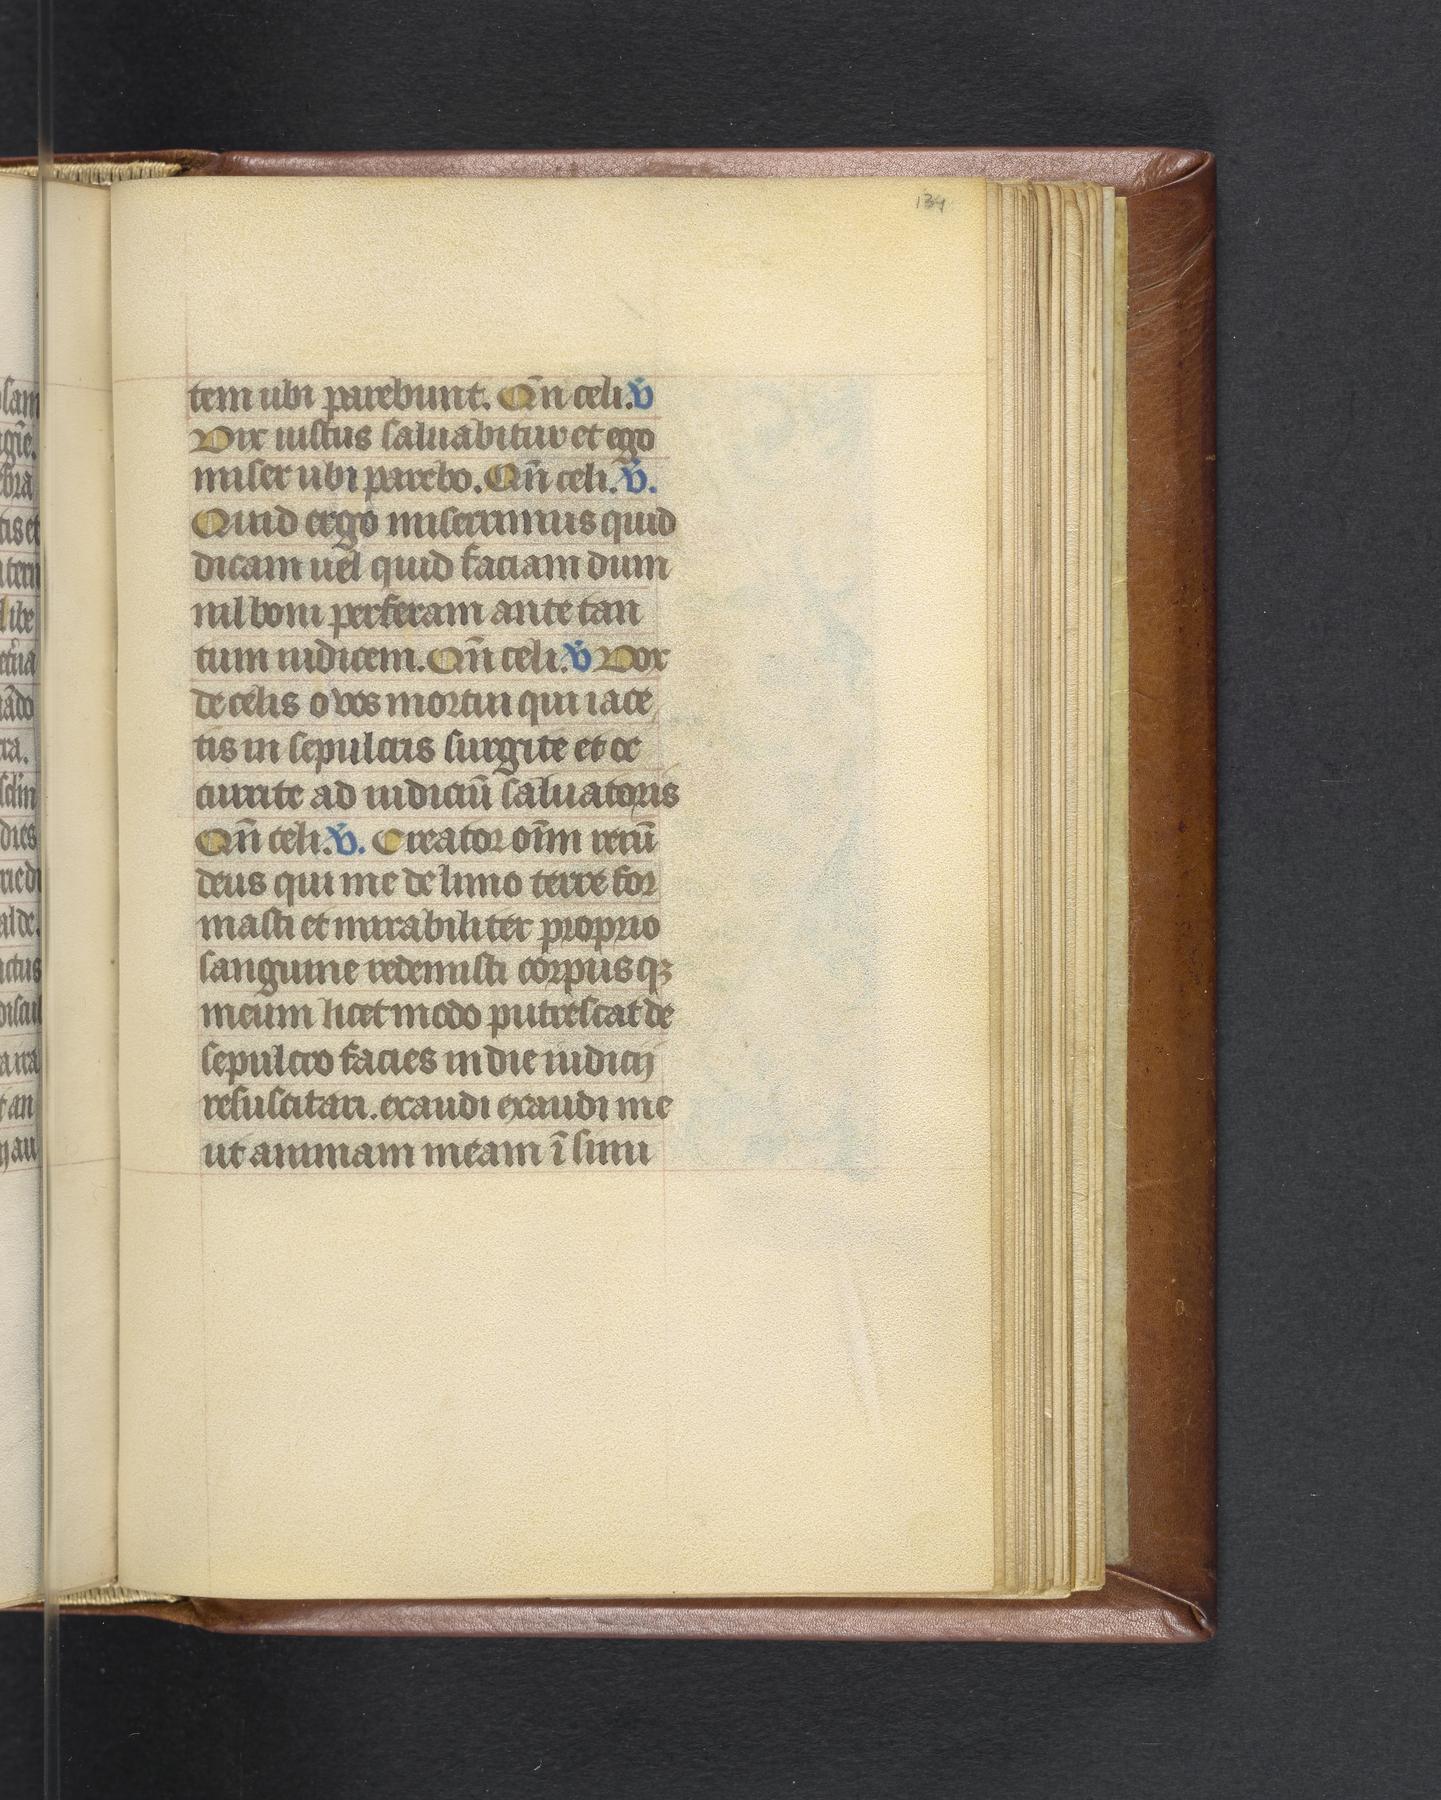 134
tem ubi parebunt. Qñ celi. v̾
Vix iustus saluabitur et ego
miser ubi parebo. Qñ celi. v̾.
Quid ergo miserrimus quid
dicam uel quid faciam dum
nil boni perferam ante tan
tum iudicem. Qñ celi. v̾ Vox
de celis o vos mortui qui iace
tis in sepulcris surgite et oc
currite ad iudiciū saluatoris
Qñ celi. v̾. Creator oīm rerū
deus qui me de limo terre for
masti et mirabiliter proprio
sanguine redemisti corpusqꝫ
meum licet modo putrescat de
sepulcro facies in die iudicij
resuscitari. exaudi exaudi me
ut animam meam ī sinu